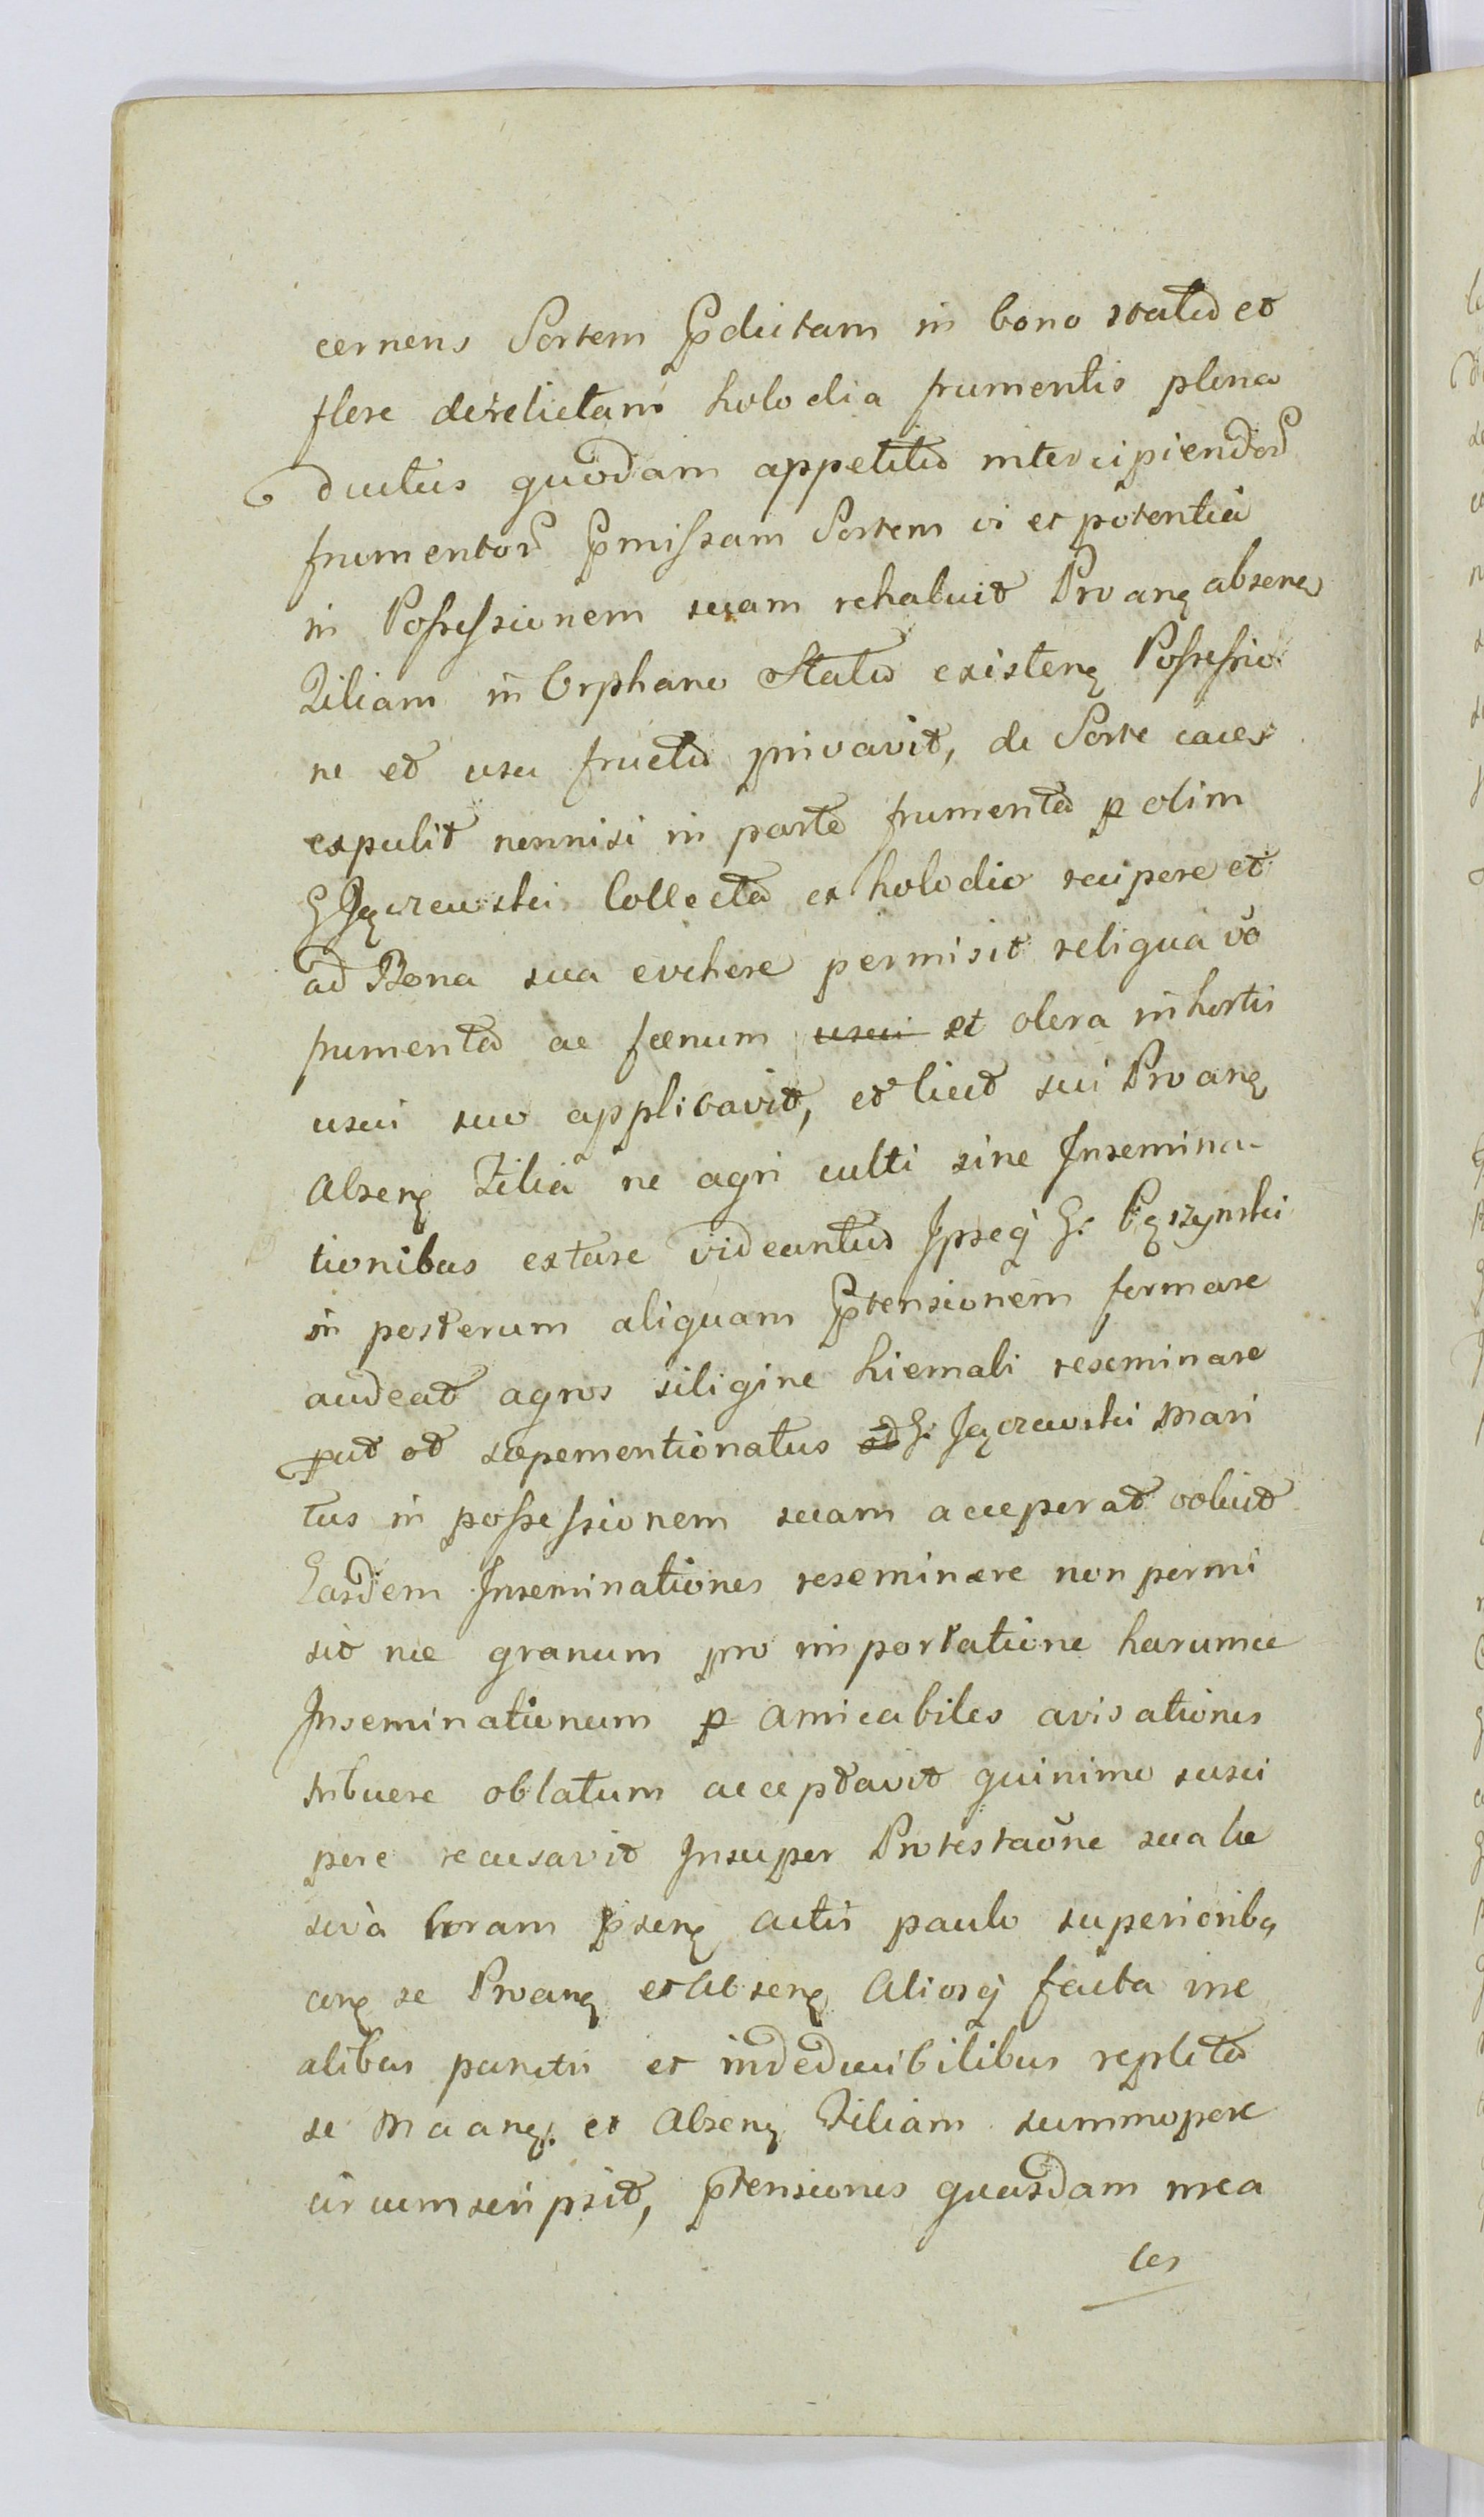 cernens Sortem Pdictam in bono statu et
flore derelictam holodia frumentis plena
ductus quodam appetitu intercipiendor
frumentor Pmissam Sortem vi et potentia
in Possessionem suam rehabuit Proang absene
Filiam in Orphano Statu existeng Possessio
ne et usu fructu privavit, de Sorte eades
expulit nonnisi in parte frumenta p olim
G Jęczewski Collecta ex holodio recipere et
ad Bona sua evehere permisit reliqua vo
frumenta ac fœnum usui et olera in hortis
usui suo applicavit, et licet sui Proang
Abseng Filia ne agri culti sine Insemina-
tionibus extare videantur Ipseq G. Pęszynski
in posterum aliquam Ptensionem formare
audeat agros siligine hiemali reseminare
put et sœpementionatus G. Jęczewski Mari
tus in possessionem suam acceperat voluit
Easdem Inseminationes reseminare non permi
sit nec granum pro importatione harumce
Inseminationum p amicabiles avisationes
tribuere oblatum acceptavit quinimo susci
pere recusavit Insuper Protestaone sua lœ
siva Coram pseng actis paulo superiorib9
cong se Proang et Abseng Aliosq facta ine
alibus punctis et indeducibilibus repleta
se Maang. et Abseng Filiam summopere
circumscripsit, ptensiones quasdam inea
les